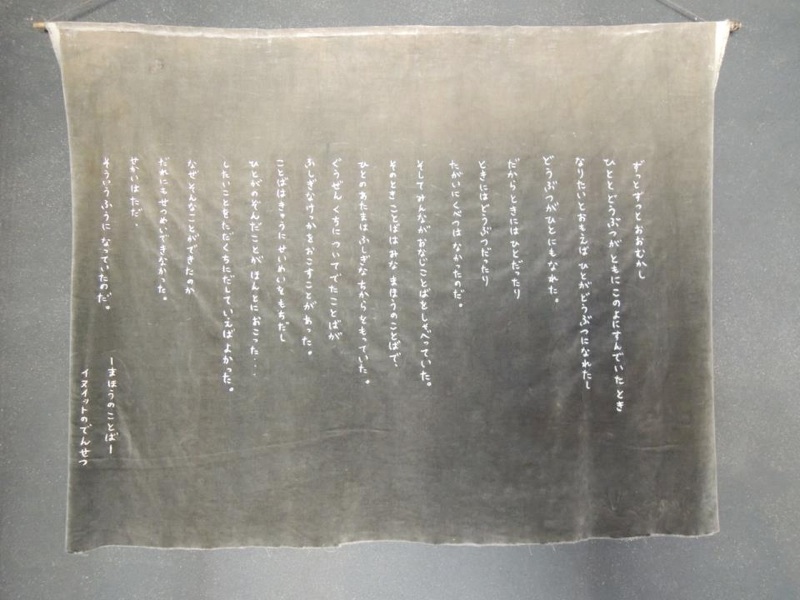 ずっとずっとおおむかし
ひととどうぶつが ともにこのよにすんでいたとき
なりたいとおもえば ひとがどうぶつになれたし
どうぶつがひとにもなれた。
だからときにはひとだったり
ときにはどうぶつだったり
たがいにくべつはなかったのだ。
そしてみんながおなじことばをしゃべっていた。
そのときことばはみな まほうのことばで、
ひとのあたまはふしぎなちからをもっていた。
ぐうぜん くちについてでたことばが
ふしぎなけっかをおこすことがあった。
ことばはきゅうに せいめいをもちだし
ひとがのぞんだことが ほんとにおこった・・・
したいことをただくちにだしていえば よかった。
なぜそんなことができたのか
だれにもせつめいできなかった。
せかいはただ、
そういうふうに なっていたのだ。
ーまほうのことばー
イヌイットのでんせつ